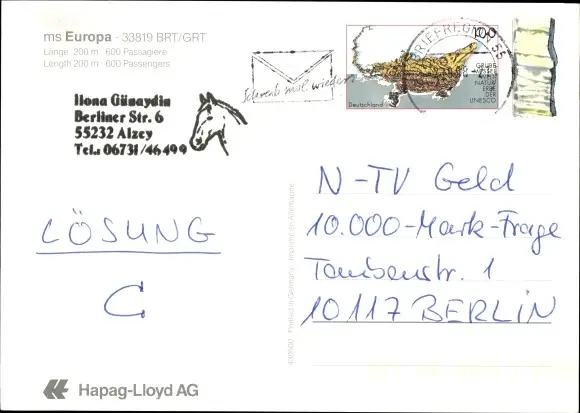 ms Europa - 33819 BRT/GRT
Länge 200 m · 600 Passagiere
Length 200 m · 600 Passengers
Ilona Günaydin
Berliner Str. 6
55232 Alzey
Tel.: 06731/46499
Schreib mal wieder
BRIEFREGION 55
100
GRUBE
MESSEL
NATUR
ERBE
DER
UNESCO
Deutschland
LÖSUNG
C
N-TV Geld
10.000-Mark-Frage
Taubenstr. 1
10117 BERLIN
Printed in Germany · Imprimé en Allemagne
Hapag-Lloyd AG